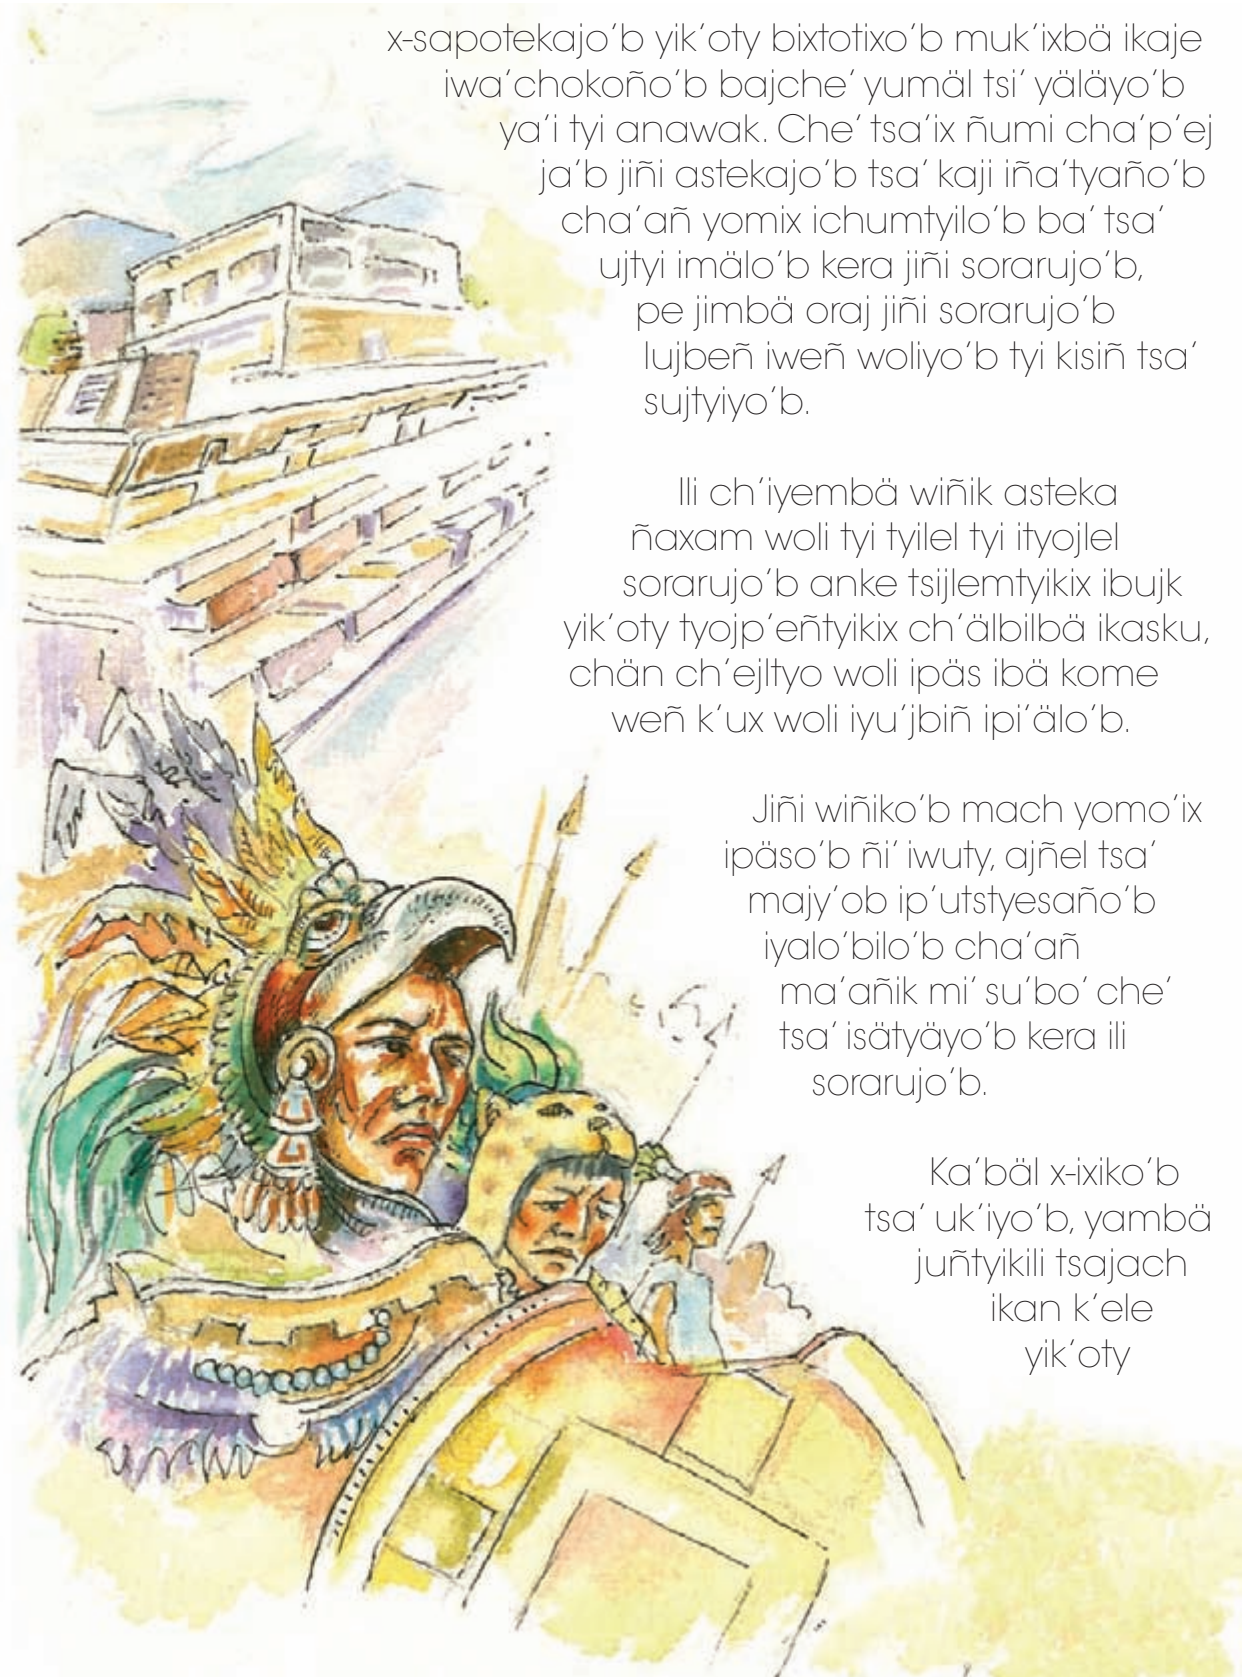 x-sapotekajo’b yik’oty bixtotixo’b muk’ixbä ikaje
iwa’chokoño’b bajche’ yumäl tsi’ yäläyo’b
ya’i tyi anawak. Che’ tsa’ix ñumi cha’p’ej
ja’b jiñi astekajo’b tsa’ kaji iña’tyaño’b
cha’añ yomix ichumtyilo’b ba’ tsa’
ujtyi imälo’b kera jiñi sorarujo’b,
pe jimbä oraj jiñi sorarujo’b
lujbeñ iweñ woliyo’b tyi kisiñ tsa’
sujtyiyo’b.

Ili ch’iyembä wiñik asteka
ñaxam woli tyi tyilel tyi ityojlel
sorarujo’b anke tsijlemtyikix ibujk
yik’oty tyojp’eñtyikix ch’älbilbä ikasku,
chän ch’ejltyo woli ipäs ibä kome
weñ k’ux woli iyu’jbiñ ipi’älo’b.

Jiñi wiñiko’b mach yomo’ix
ipäso’b ñi’ iwuty, ajñel tsa’
majy’ob ip’utstyesaño’b
iyalo’bilo’b cha’añ
ma’añik mi’ su’bo’ che’
tsa’ isätyäyo’b kera ili
sorarujo’b.

Ka’bäl x-ixiko’b
tsa’ uk’iyo’b, yambä
juñtyikili tsajach
ikan k’ele
yik’oty